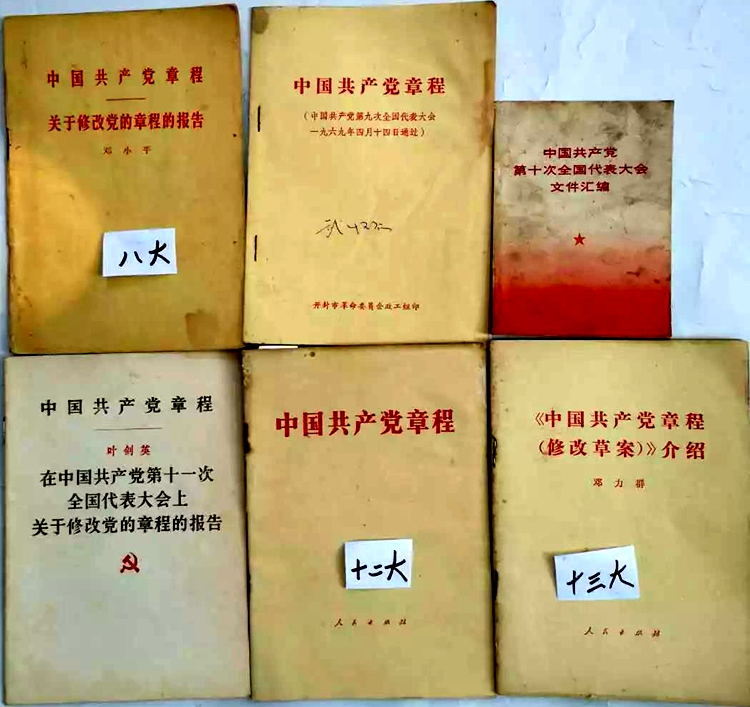 中国共产党章程
关于修改党的章程的报告
邓小平
八大
中国共产党章程
（中国共产党第九次全国代表大会
一九六九年四月十四日通过）
开封市革命委员会政工组印
中国共产党
第十次全国代表大会
文件汇编
中国共产党章程
叶剑英
在中国共产党第十一次
全国代表大会上
关于修改党的章程的报告
中国共产党章程
十二大
人民出版社
《中国共产党章程
（修改草案）》介绍
邓力群
十三大
人民出版社